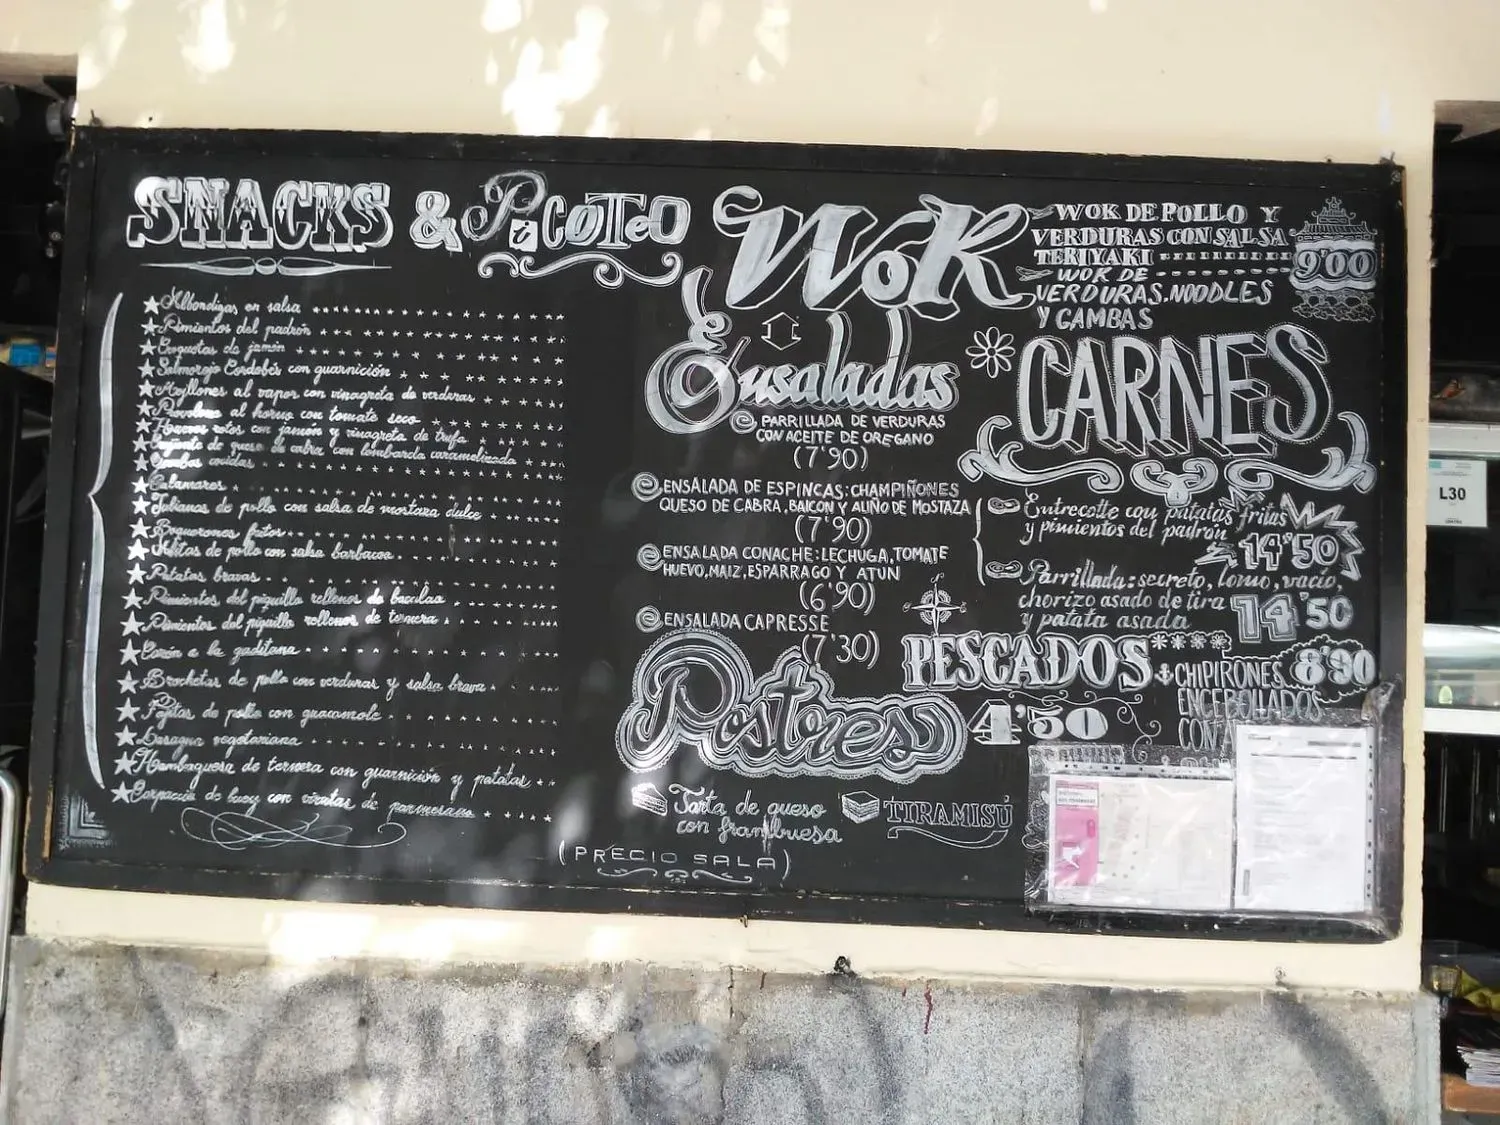 SNACKS & PiCOTeO
Albondigas en salsa
Pimientos del padrón
Croquetas de jamón
Salmorejo Cordobés con guarnición
Mejillones al vapor con vinagreta de verduras
Provolone al horno con tomate seco
Huevos rotos con jamón y vinagreta de trufa
de queso de cabra con lombarda caramelizada
Gambas cocidas
Calamares
de pollo con salsa de mostaza dulce
Boquerones fritos
Alitas de pollo con salsa barbacoa
Patatas bravas
Pimientos del piquillo rellenos de bacalao
Pimientos del piquillo rellenos de ternera
Cazón a la gaditana
Brochetas de pollo con verduras y salsa brava
Fajitas de pollo con guacamole
Lasagna vegetariana
Hamburguesa de ternera con guarnición y patatas
Carpaccio de buey con virutas de parmesano
WoK
WOK DE POLLO Y
VERDURAS CON SALSA
TERIYAKI
9'00
WOK DE
VERDURAS.NOODLES
Y GAMBAS
Ensaladas
PARRILLADA DE VERDURAS
CON ACEITE DE OREGANO
(7'90)
ENSALADA DE ESPINCAS:CHAMPIÑONES
QUESO DE CABRA, BAICON Y ALIÑO DE MOSTAZA
(7'90)
ENSALADA CONACHE:LECHUGA,TOMATE
HUEVO,MAIZ,ESPARRAGO Y ATUN
(6'90)
ENSALADA CAPRESSE
(7'30)
CARNES
Entrecotte con patatas fritas
y pimientos del padrón
14'50
Parrillada: secreto, lomo, vacio,
chorizo asado de tira
y patata asada
14'50
PESCADOS
CHIPIRONES
8'90
ENCEBOLLADOS
CON
Postres
4'50
Tarta de queso
con frambuesa
TIRAMISÚ
(PRECIO SALA)
L30